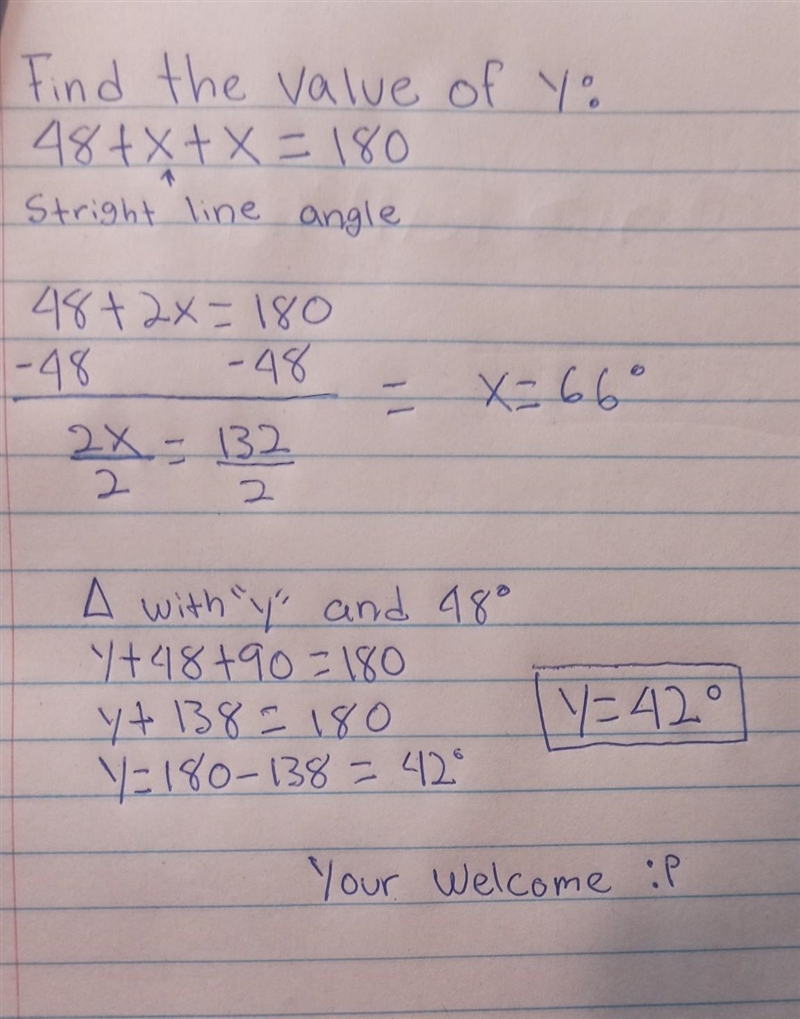 Find the value of y:
48 + x + x = 180
↑
Stright line angle
48 + 2x = 180
-48 -48
= x = 66°
2x/2 = 132/2
Δ with "y" and 48°
y + 48 + 90 = 180
y + 138 = 180
y = 180 - 138 = 42°
y = 42°
Your Welcome :P